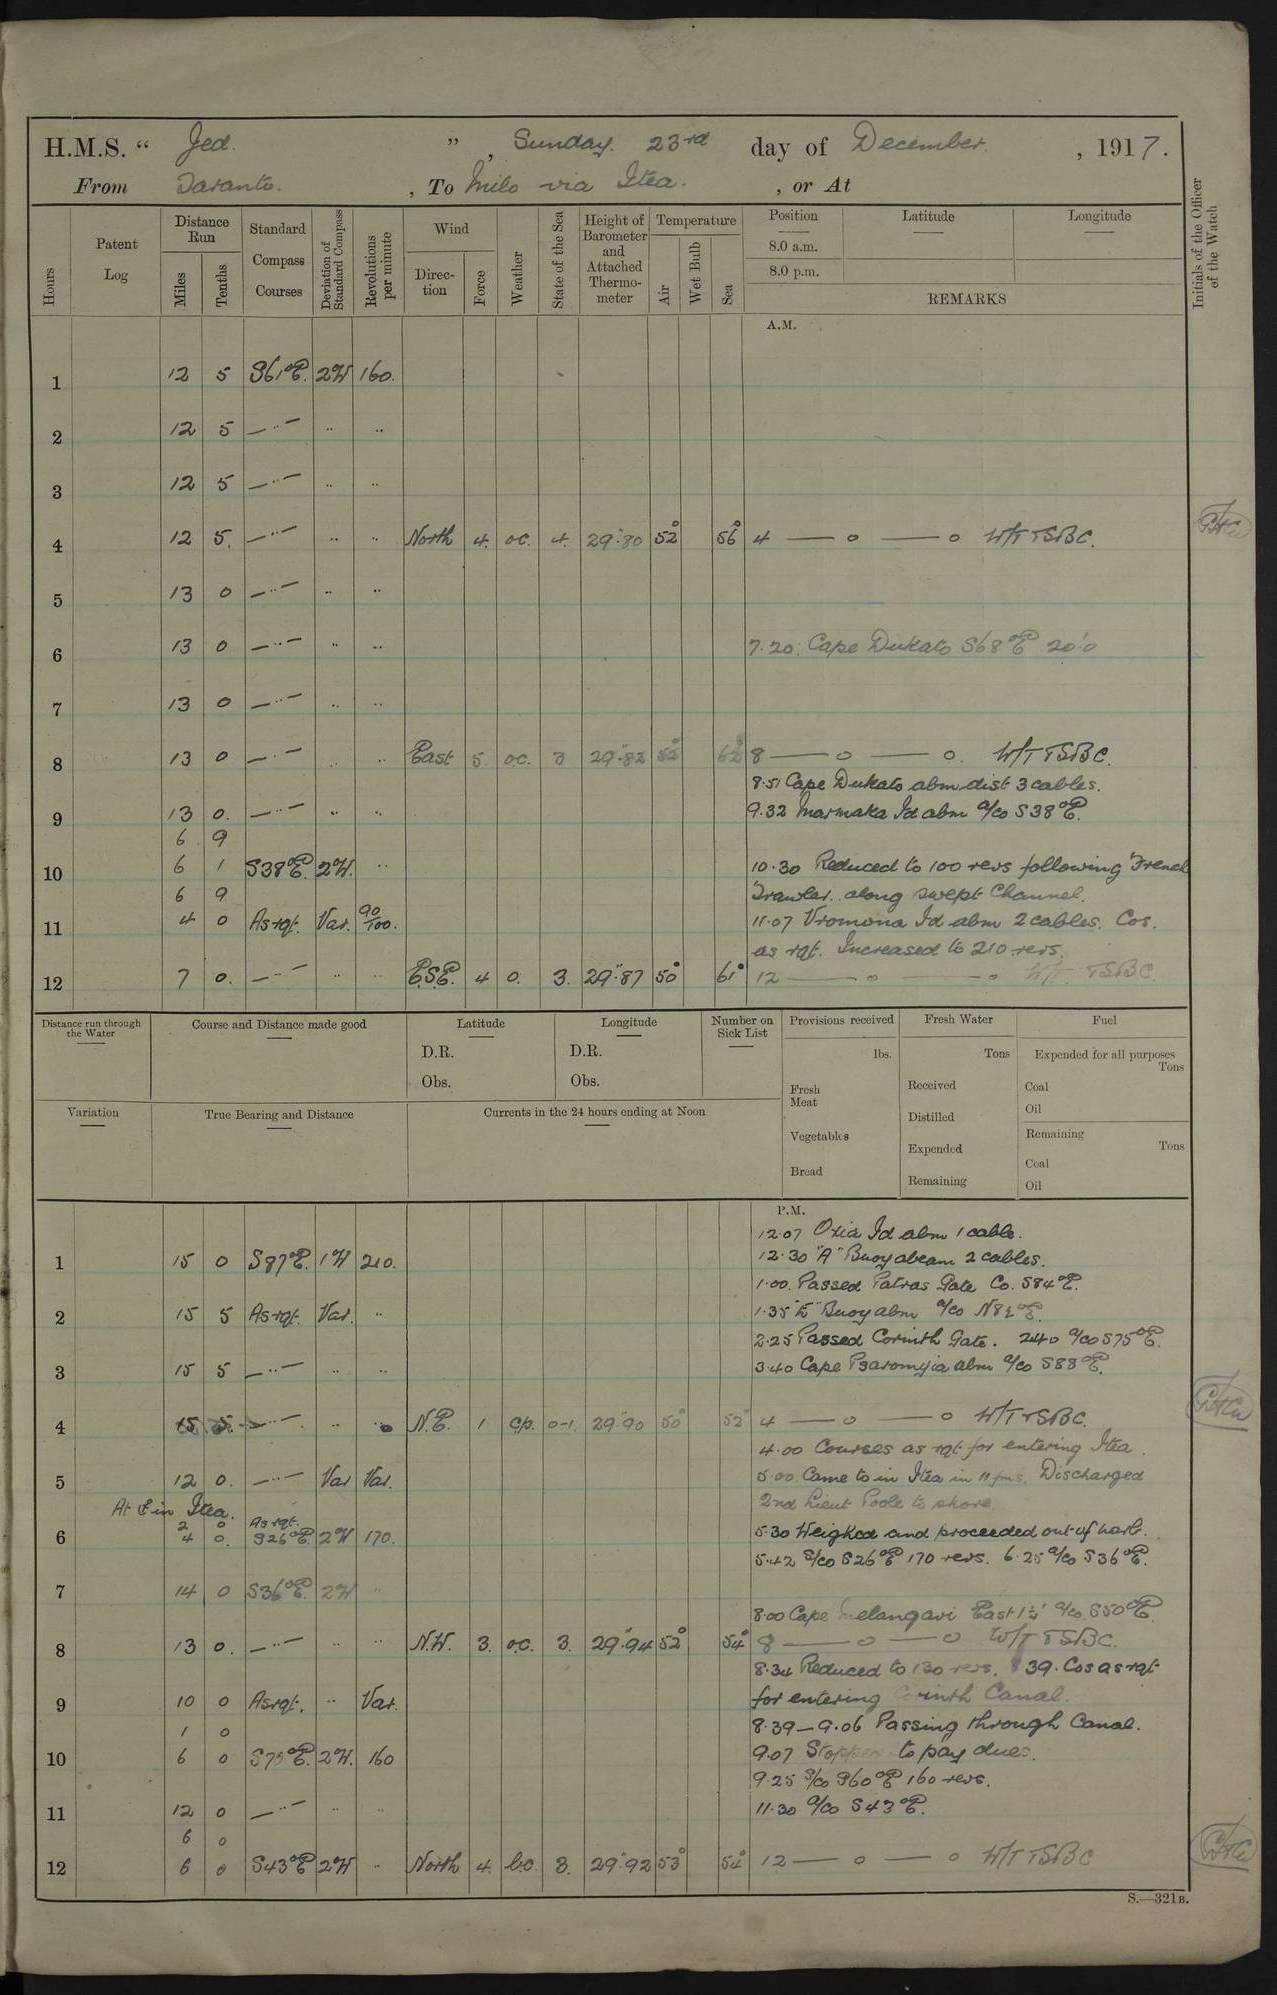 H.M.S. “ Jed. ” , Sunday. 23rd day of December. , 1917.
From Taranto. , To Milo via Itea. , or At
Hours
Patent Log
Distance Run
Miles
Tenths
Standard Compass Courses
Deviation of Standard Compass
Revolutions per minute
Wind
Direction
Force
Weather
State of the Sea
Height of Barometer and Attached Thermometer
Temperature
Air
Wet Bulb
Sea
Position
Latitude
Longitude
8.0 a.m.
8.0 p.m.
REMARKS
Initials of the Officer of the Watch
A.M.
1 12 5 S61°E. 2W 160.
2 12 5 —··— ·· ··
3 12 5 —··— ·· ··
4 12 5. —··— ·· ·· North 4. oc. 4. 29·80 52° 56° 4 — o — o W/T TSBC.
5 13 0 —··— ·· ··
6 13 0 —··— ·· ·· 7.20. Cape Dukato S68°E 20'.0
7 13 0 —··— ·· ··
8 13 0 —··— ·· ·· East 5. oc. 3 29·82 52° 62° 8 — o — o. W/T TSBC.
8.51 Cape Dukato abm dist 3 cables.
9 13 0. —··— ·· ·· 9.32 Marmaka Id abm a/co S38°E.
6 9
10 6 1 S38°E. 2W. ·· 10.30 Reduced to 100 revs following French
6 9 Trawler. along swept Channel.
11 4 0 As rqt. Var. 90/100. 11.07 Vromona Id abm 2 cables. Cos.
as rqt. Increased to 210 revs.
12 7 0. —··— ·· ·· E.S.E. 4 o. 3. 29·87 50° 61° 12 — o — o W/T. TSBC
Distance run through the Water
Course and Distance made good
Latitude
D.R.
Obs.
Longitude
D.R.
Obs.
Number on Sick List
Provisions received
lbs.
Fresh Meat
Vegetables
Bread
Fresh Water
Tons
Received
Distilled
Expended
Remaining
Fuel
Expended for all purposes
Tons
Coal
Oil
Remaining
Tons
Coal
Oil
Variation
True Bearing and Distance
Currents in the 24 hours ending at Noon
P.M.
12.07 Oxia Id abm 1 cable.
1 15 0 S87°E. 1W 210. 12.30 "A" Buoy abeam 2 cables.
1.00. Passed Patras Gate Co. S84°E.
2 15 5 As rqt. Var. ·· 1.35 "E" Buoy abm a/co N82°E.
2.25 Passed Corinth Gate. 240 a/co S75°E.
3 15 5 —··— ·· ·· 3.40 Cape Psaromyia abm a/co S88°E.
4 15 5. —··— ·· N.E. 1 cp. 0-1. 29·90 50° 52° 4 — o — o W/T TSBC.
4.00 Courses as rqt for entering Itea.
5 12 0. —··— Var Var. 5.00. Came to in Itea in 11 fms. Discharged
At in Itea. 2nd Lieut Poole to shore.
2 0 As rqt.
6 4 0. S26°E. 2W 170. 5.30 Weighed and proceeded out of harb.
5.42 S/co S26°E 170 revs. 6.25 a/co S36°E.
7 14 0 S36°E. 2W ··
8.00 Cape Melangavi East 1¼' a/co. S50°E.
8 13 0. —··— ·· ·· N.W. 3. oc. 3. 29·94 52° 54° 8 — o — o W/T TSBC.
8.34 Reduced to 130 revs. 8.39. Cos as rqt
9 10 0 As rqt. ·· Var. for entering Corinth Canal.
1 0 8.39 – 9.06 Passing through Canal.
10 6 0 2W. 160 9.07 Stopped to pay dues.
9.25 S/co S60°E 160 revs.
11 12 0 —··— ·· ·· 11.30 a/co S43°E.
6 0
12 6 0 S43°E 2W ·· North 4. bc. 3. 29·92 53° 54° 12 — o — o W/T TSBC
S.—321B.